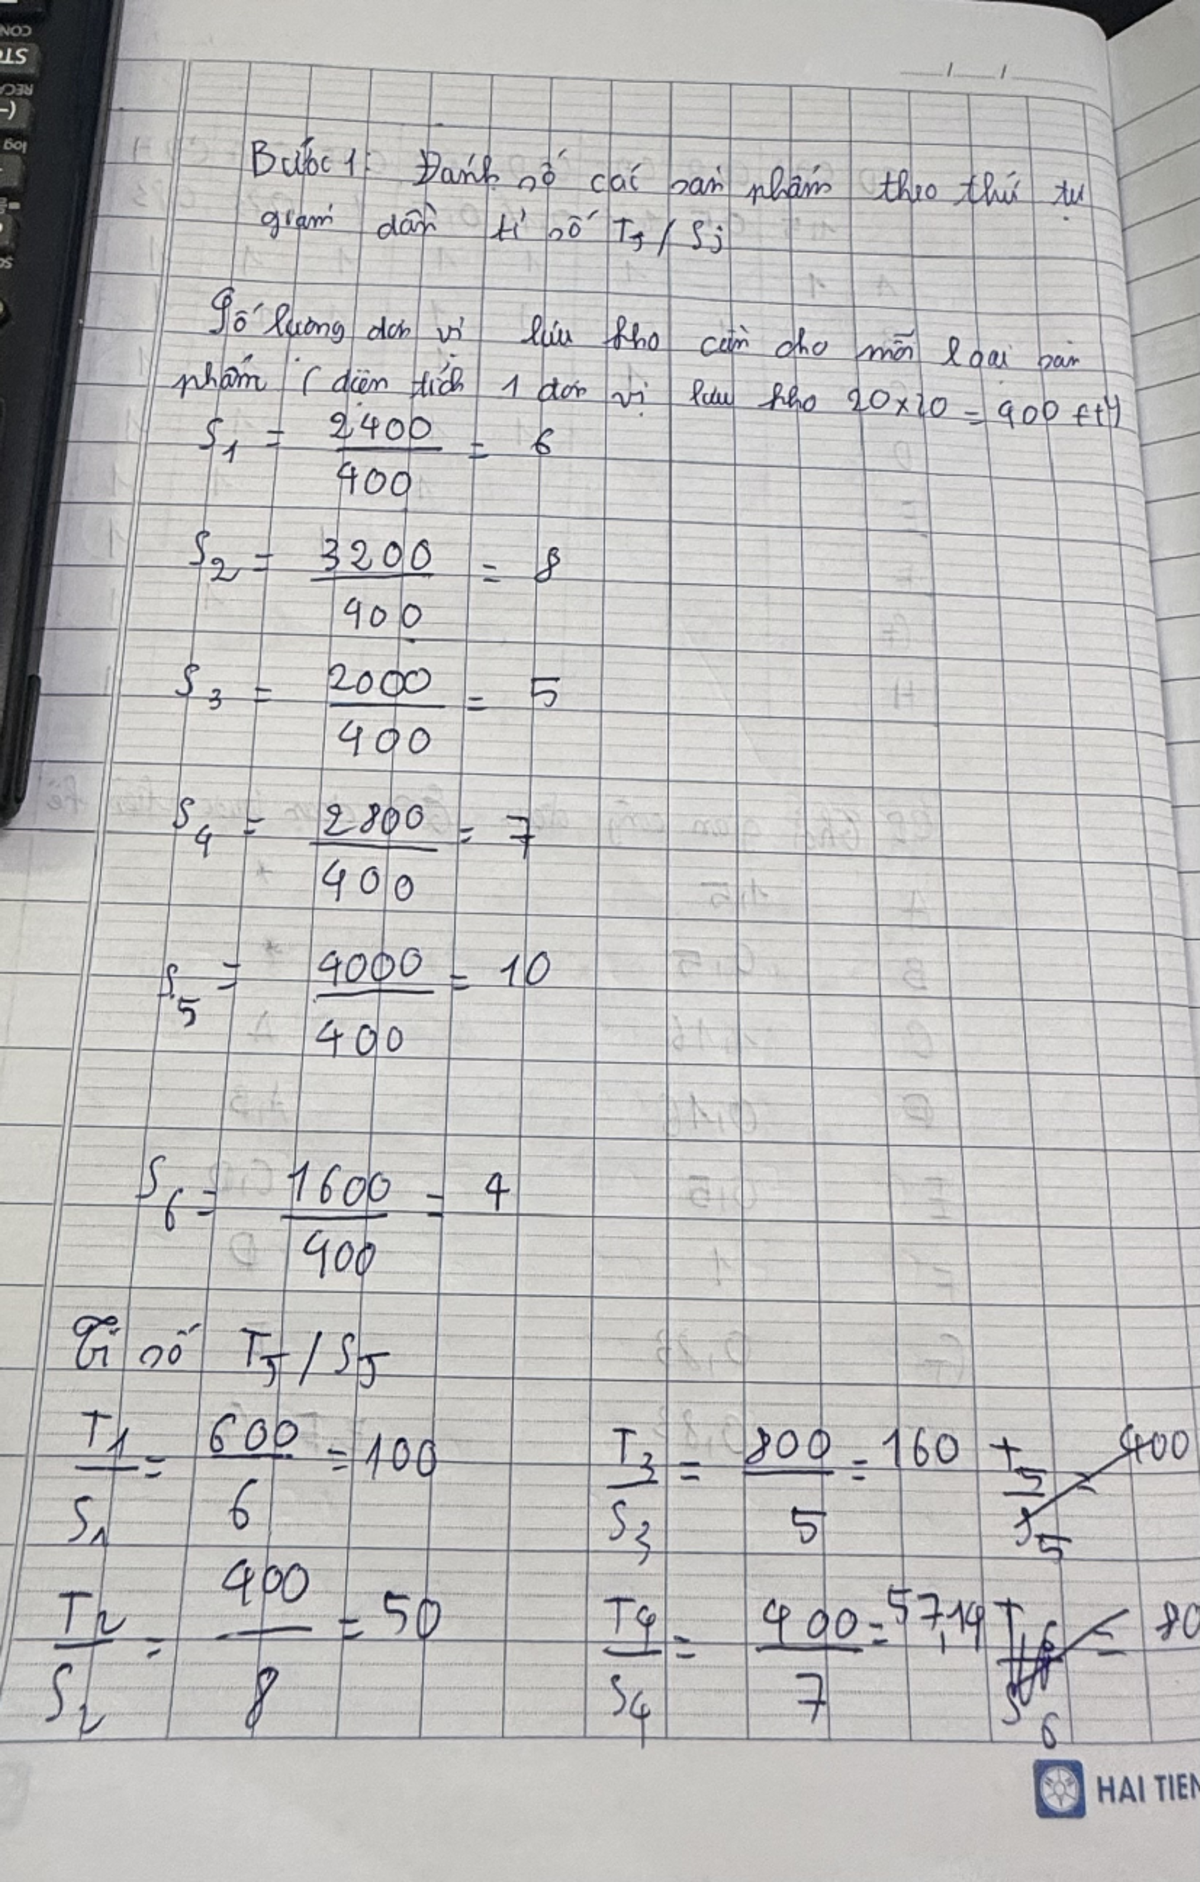 Bước 1: Đánh số các sản phẩm theo thứ tự
giảm dần tỉ số Tj / Sj
Số lượng đơn vị lưu kho cần cho mỗi loại sản
phẩm ( diện tích 1 đơn vị lưu kho 20 x 20 = 400 ft4)
S1 = 2400 / 400 = 6
S2 = 3200 / 400 = 8
S3 = 2000 / 400 = 5
S4 = 2800 / 400 = 7
S5 = 4000 / 400 = 10
S6 = 1600 / 400 = 4
Tỉ số Tj / Sj
T1 / S1 = 600 / 6 = 100
T2 / S2 = 400 / 8 = 50
T3 / S3 = 800 / 5 = 160
T4 / S4 = 400 / 7 = 57,14
T5 / S5 = 400
6 = 80
HAI TIEN
CON
STO
RECA
(-)
log